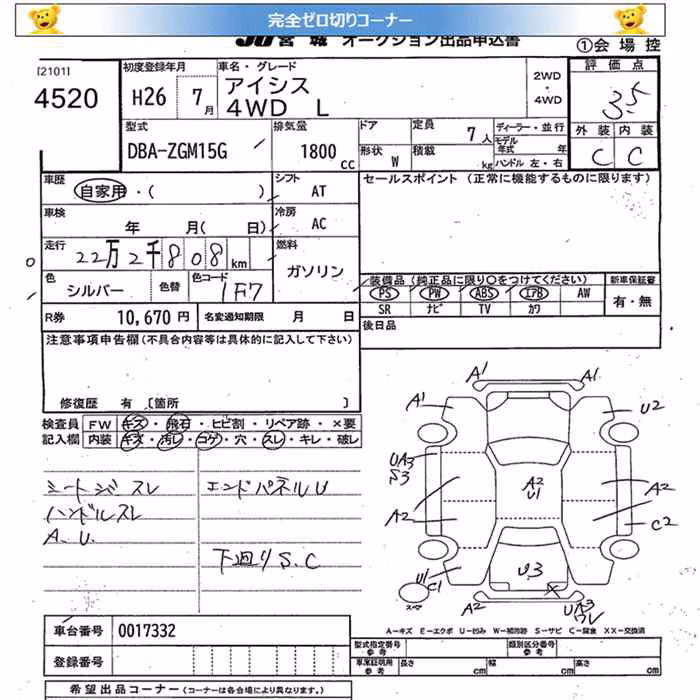 完全ゼロ切りコーナー
JU宮城 オークション出品申込書
①会場控
[2101]
4520
初度登録年月
H26 7月
車名・グレード
アイシス
4WD L
2WD
・
4WD
評価点
3.5
外装 内装
C C
型式
DBA-ZGM15G
排気量
1800cc
ドア
形状 W
定員 7人
積載 kg
ディーラー・並行
モデル年式 年
ハンドル 左・右
車歴
自家用・( )
シフト
AT
セールスポイント (正常に機能するものに限ります)
車検
年 月( 日)
冷房
AC
走行
22万2千808km
燃料
ガソリン
色
シルバー
色替
色コード
1F7
装備品(純正品に限り○をつけてください)
PS PW ABS エアB AW
SR ナビ TV カワ
新車保証書
有・無
R券 10,670円
名変通知期限 月 日
後日品
注意事項申告欄(不具合内容等は具体的に記入して下さい)
修復歴 有 〔箇所 〕
検査員記入欄
FW キズ・飛石・ヒビ割・リペア跡・×要
内装 キズ・汚レ・コゲ・穴・スレ・キレ・破レ
シートジミ スレ
ハンドルスレ
A.U.
エンドパネルU
下廻りS.C
A1 A1
A1 U2
UA3
S3
A2
A2
U1
A2
A2 C2
U1
C1
U3
スペア
A2
UA3
ワレ
A-キズ E-エクボ U-凹み W-補修跡 S-サビ C-腐食 XX-交換済
車台番号 0017332
登録番号
型式指定番号 参考
類別区分番号 参考
車庫証明用 参考
長さ cm
幅 cm
高さ cm
希望出品コーナー(コーナーは各会場により異なります。)